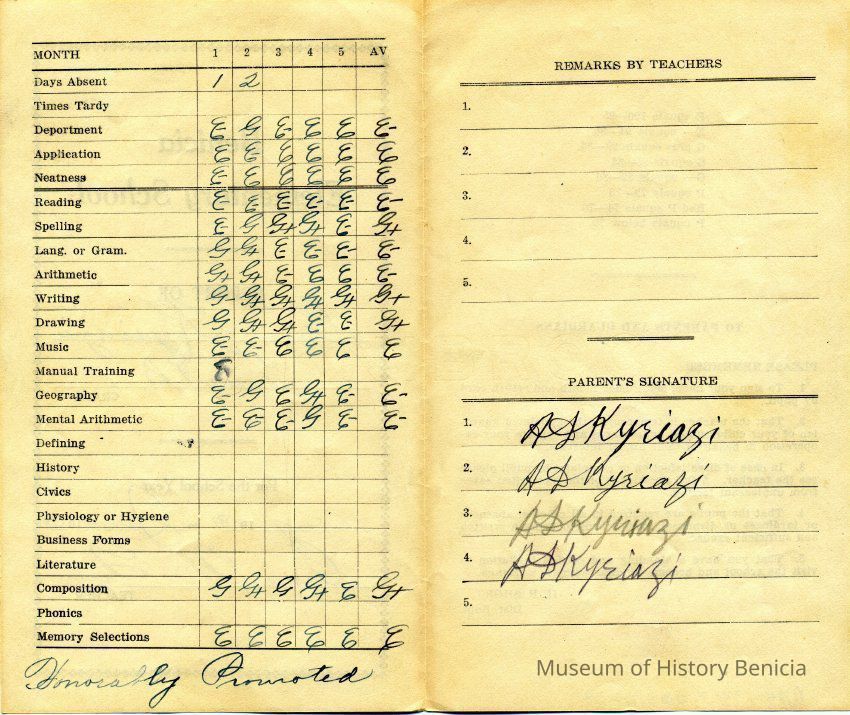 MONTH 1 2 3 4 5 AV
Days Absent 1 2
Times Tardy
Deportment E G E- E E E-
Application E E E E E E
Neatness E E E E E E
Reading E E- E E E E-
Spelling E G G+ G+ E- G+
Lang. or Gram. G G+ E E E- E-
Arithmetic G+ G+ E- E E E-
Writing G- G+ G+ G+ G+ G+
Drawing G G+ G+ E- E G+
Music E- E- E E E E
Manual Training
Geography E- G E G+ E- E-
Mental Arithmetic E- E E- G E- E-
Defining
History
Civics
Physiology or Hygiene
Business Forms
Literature
Composition G G+ G G+ E G+
Phonics
Memory Selections E E E E E E
Honorably Promoted
REMARKS BY TEACHERS
1.
2.
3.
4.
5.
PARENT'S SIGNATURE
1. A D Kyriazi
2. A D Kyriazi
3. A D Kyriazi
4. A D Kyriazi
5.
Museum of History Benicia